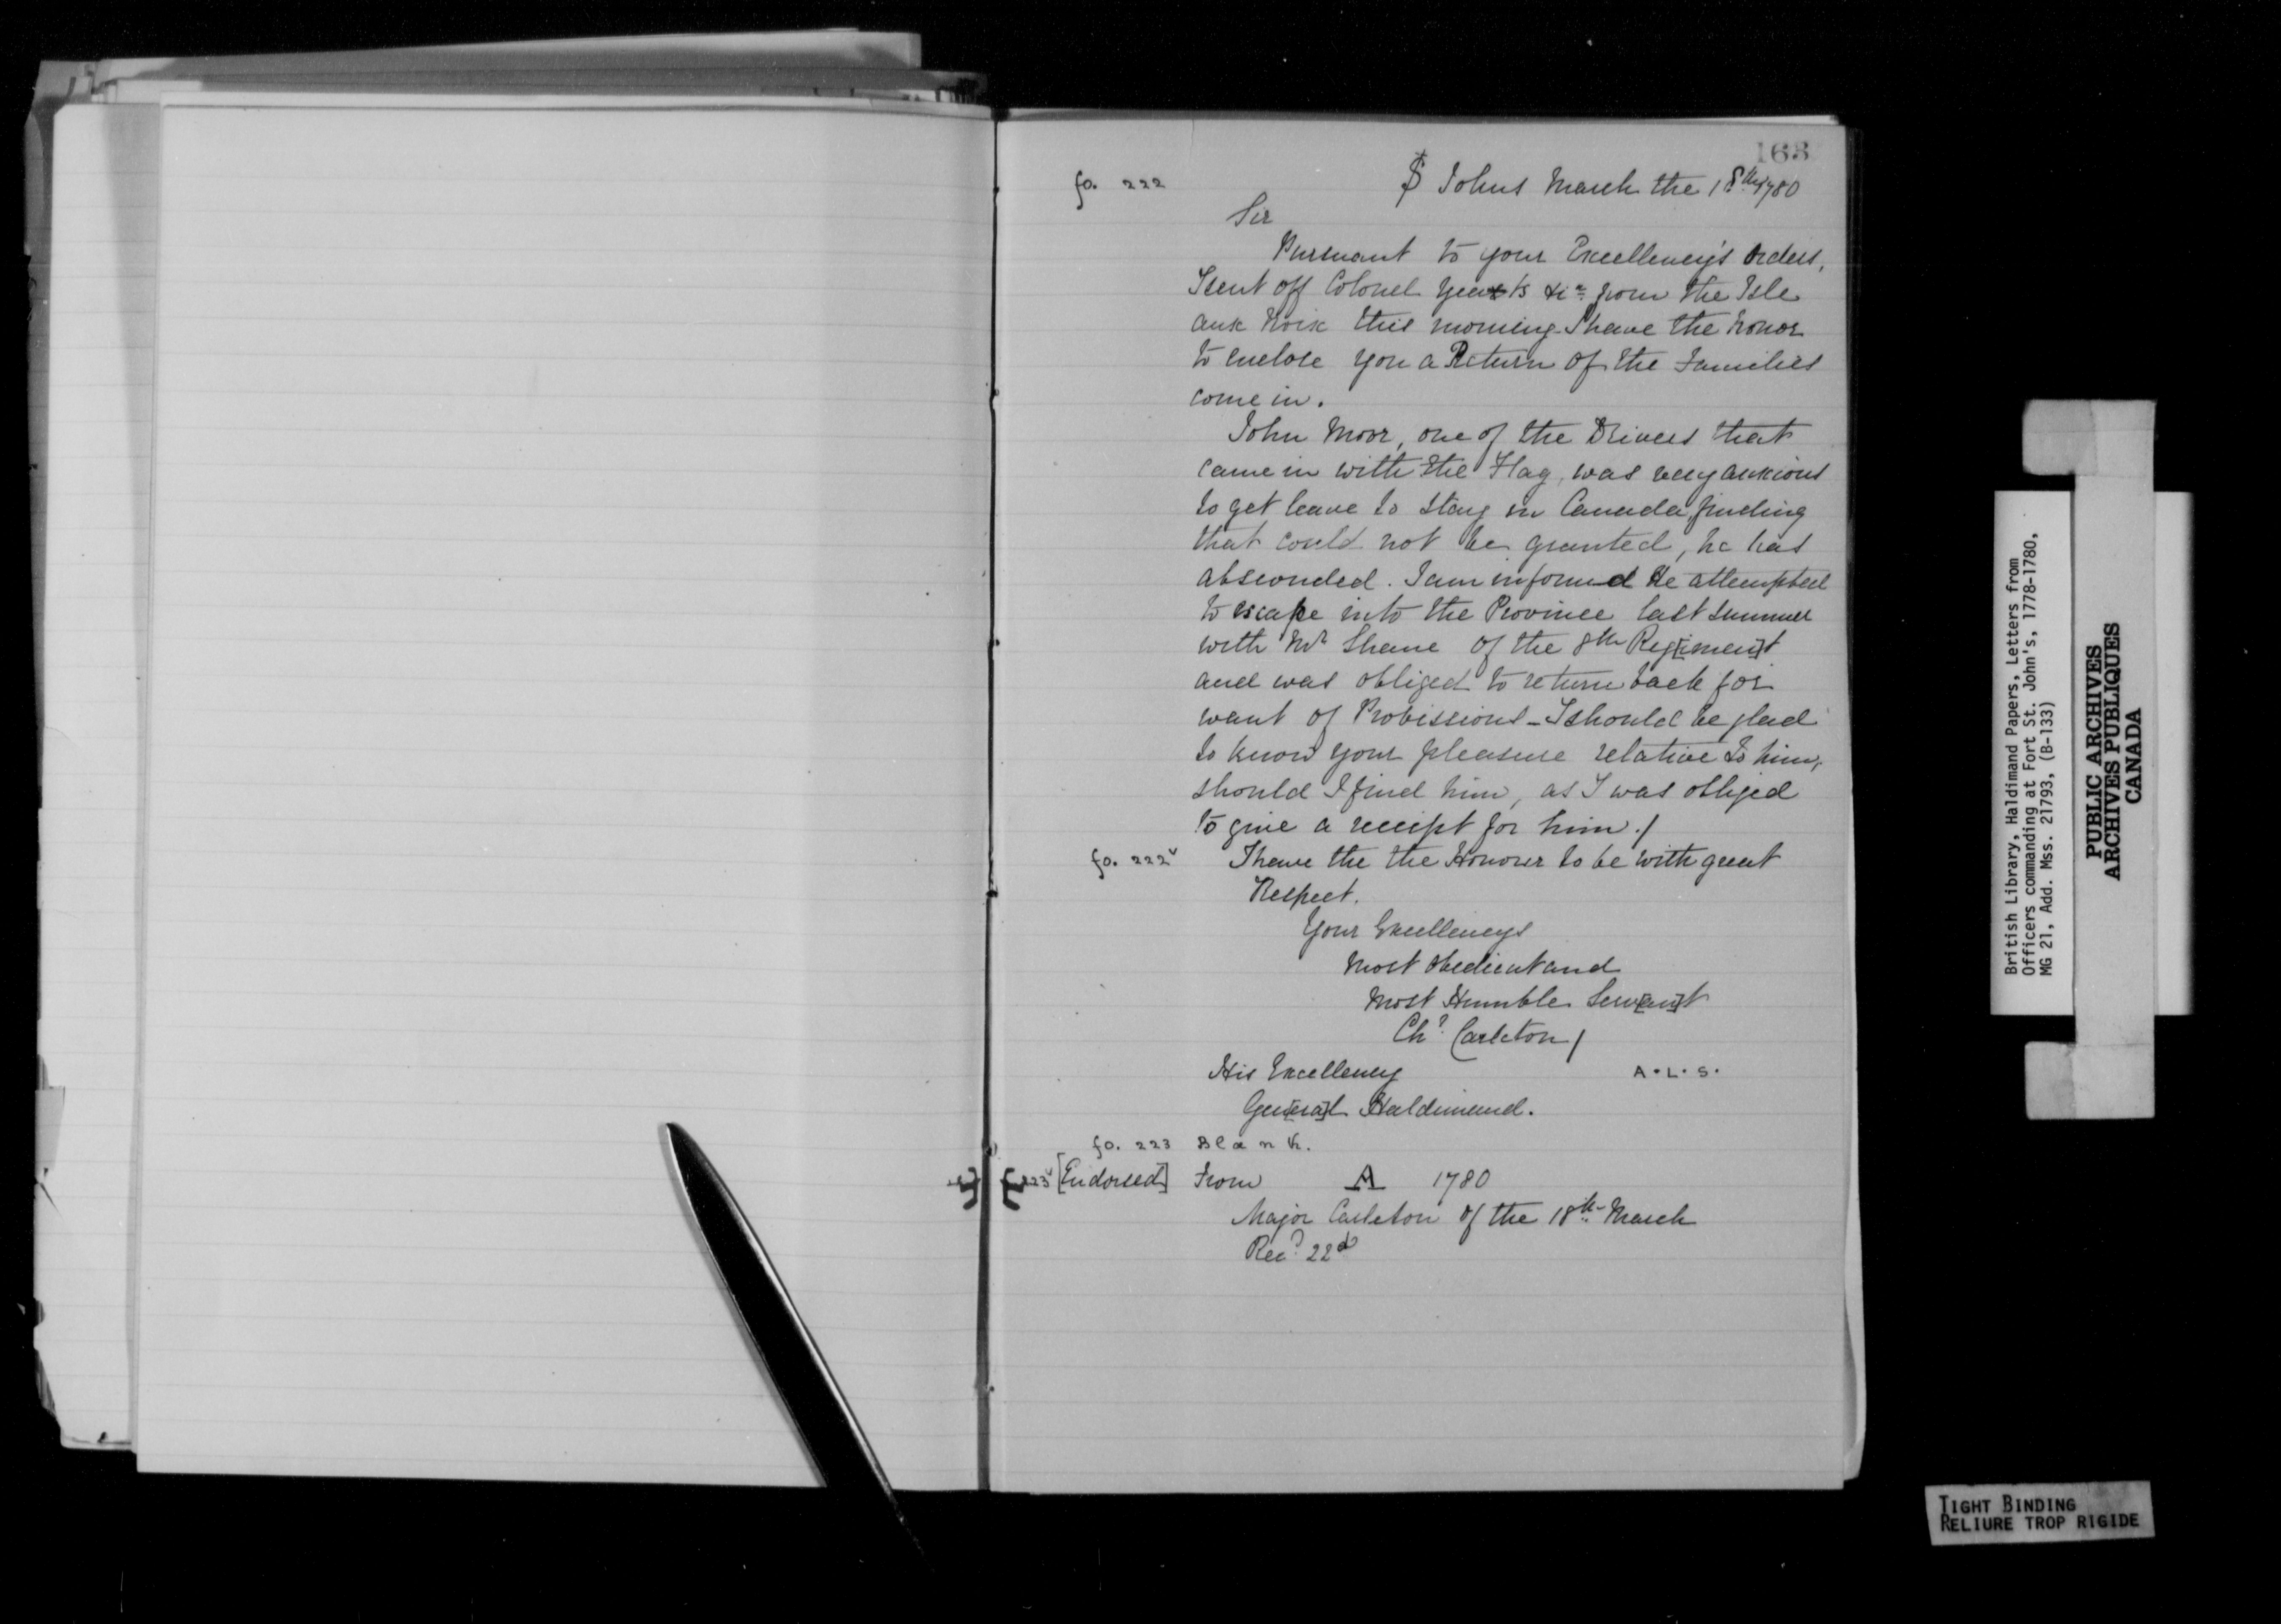 163
fo. 222
St Johns March the 18th 1780
Sir
Pursuant to your Excellency's Orders,
I sent off Colonel &c. from the Isle
aux Noix this morning - I have the honor
to enclose you a Return of the Families
come in.
John Moor, one of the Drivers that
came in with the Flag, was very anxious
to get leave to stay in Canada, finding
that could not be granted, he has
absconded. I am informed He attempted
to escape into the Province last summer
with Mr Shane of the 8th Reg[imen]t
and was obliged to return back for
want of Provissions - I should be glad
to know your pleasure relative to him,
should I find him, as I was obliged
to give a receipt for him./
fo. 222v I have the the Honour to be with great
Respect.
Your Excellencys
Most Obedient and
Most Humble Serv[an]t
Chs Carleton/
His Excellency A.L.S.
Gen[era]l Haldimand.
fo. 223 Blank.
223v [Endorsed] From A 1780
Major Carleton of the 18th March
Recd 22d
British Library, Haldimand Papers, Letters from
Officers commanding at Fort St. John's, 1778-1780,
MG 21, Add. Mss. 21793, (B-133)
PUBLIC ARCHIVES
ARCHIVES PUBLIQUES
CANADA
TIGHT BINDING
RELIURE TROP RIGIDE